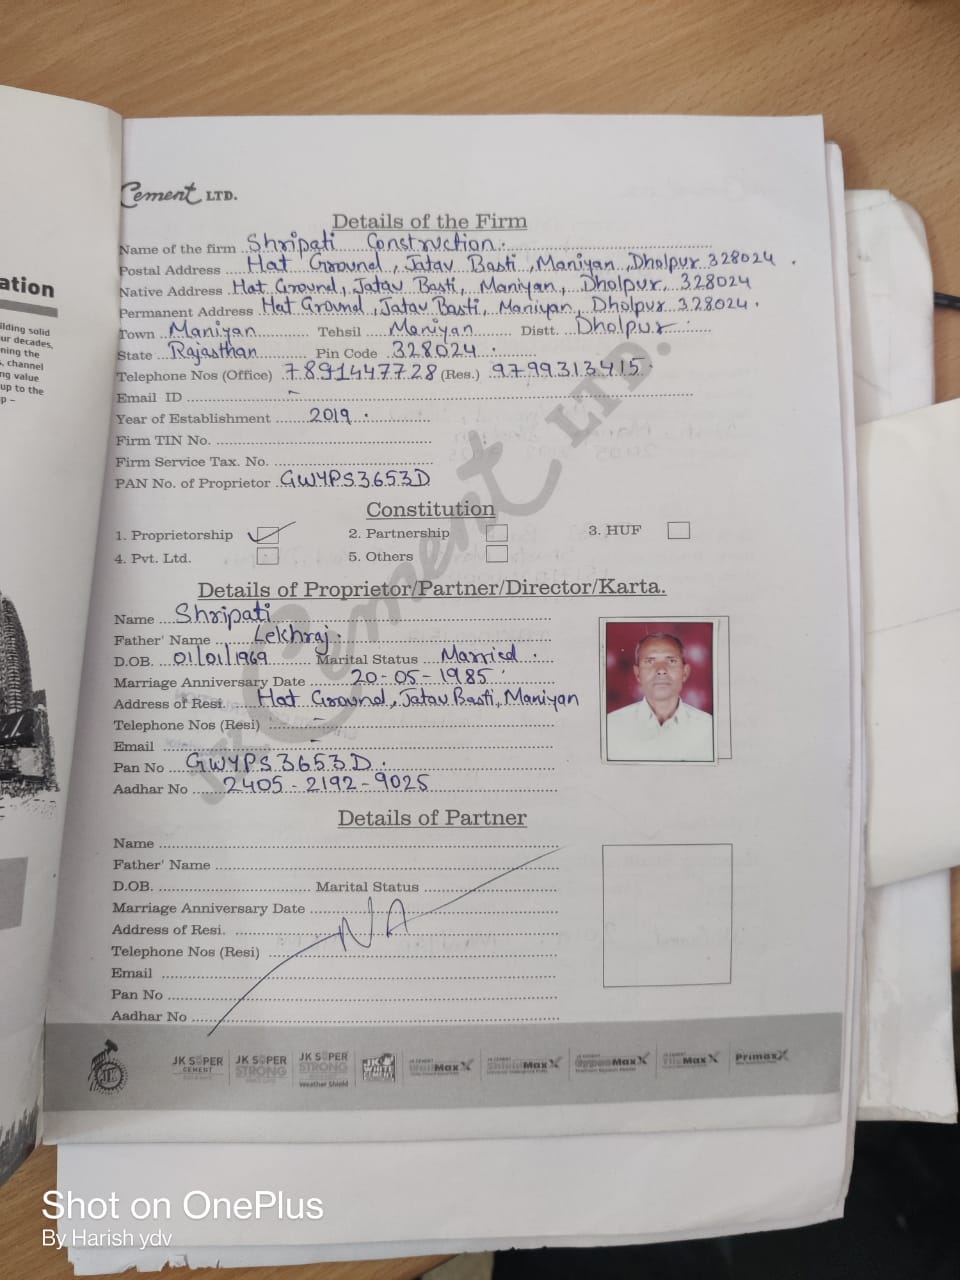 ation
ilding solid
ur decades,
ning the
, channel
ng value
up to the
p –
Cement LTD.
Details of the Firm
Name of the firm Shripati Construction.
Postal Address Hat Ground, Jatav Basti, Maniyan, Dholpur 328024.
Native Address Hat Ground, Jatav Basti, Maniyan, Dholpur, 328024
Permanent Address Hat Ground, Jatav Basti, Maniyan, Dholpur 328024.
Town Maniyan Tehsil Maniyan Distt. Dholpur
State Rajasthan Pin Code 328024.
Telephone Nos (Office) 7891447728 (Res.) 9799313415.
Email ID –
Year of Establishment 2019.
Firm TIN No.
Firm Service Tax. No.
PAN No. of Proprietor GWYPS3653D
Constitution
1. Proprietorship 2. Partnership 3. HUF
4. Pvt. Ltd. 5. Others
Details of Proprietor/Partner/Director/Karta.
Name Shripati
Father' Name Lekhraj.
D.OB. 01/01/1969 Marital Status Married.
Marriage Anniversary Date 20-05-1985
Address of Resi. Hat Ground, Jatav Basti, Maniyan
Telephone Nos (Resi) –
Email –
Pan No GWYPS3653D.
Aadhar No 2405-2192-9025
JK Cement LTD.
Details of Partner
Name
Father' Name
D.OB. Marital Status
Marriage Anniversary Date
Address of Resi. NA
Telephone Nos (Resi)
Email
Pan No
Aadhar No
JK
JK SUPER CEMENT
JK SUPER STRONG
JK SUPER STRONG Weather Shield
JK WHITE CEMENT
WallMaxX
ShieldMaxX
GypsoMaxX
TileMaxX
PrimaxX
Shot on OnePlus
By Harish ydv